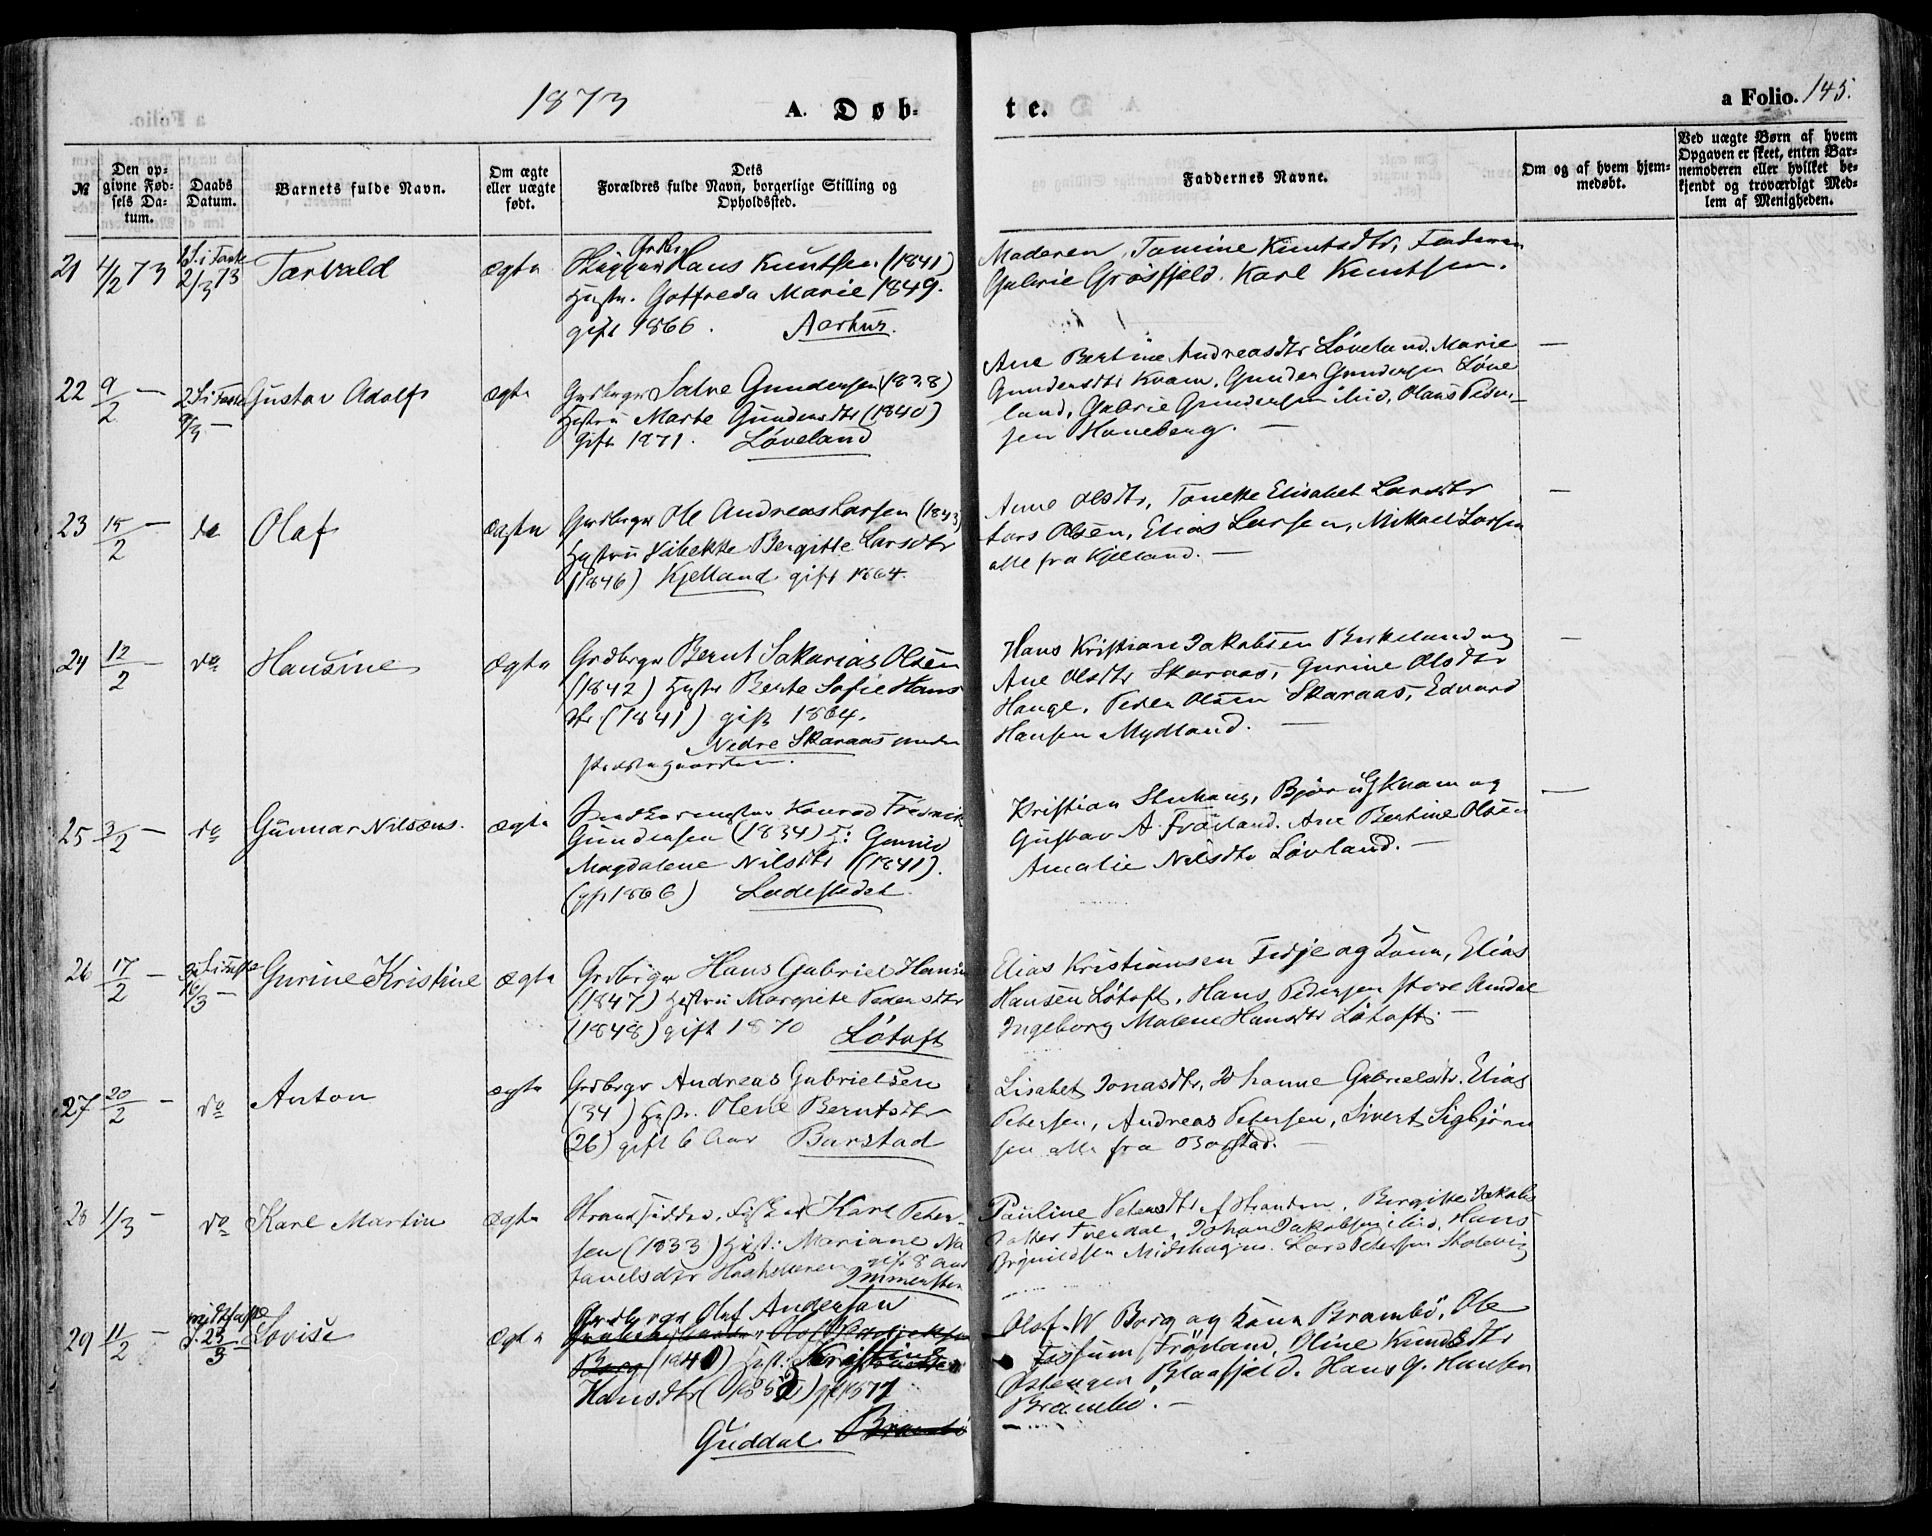 1873 A. Døb-
te. a Folio. 145.
№
Den op-
givne Fød-
sels Da-
tum.
Daabs
Datum.
Barnets fulde Navn.
Om ægte
eller uægte
født.
Dets
Forældres fulde Navn, borgerlige Stilling og
Opholdssted.
Faddernes Navne.
Om og af hvem hjem-
medøbt.
Ved uægte Børn af hvem
Opgaven er skeet, enten Bar-
nemoderen eller hvilket be-
kjendt og troværdigt Med-
lem af Menigheden.
21 4/2 73 2 S. i Faste 2/3 73 Tarvald ægte
Hans Knutsen (1841)
Hustr. Gotfreda Marie 1849.
gift 1866. Aarhus.
Moderen, Tomine Knutsdtr, Faderen
Gabriel Grøsfjeld. Karl Knutsen.
22 9/2 — 2 S i Faste 9/3 — Gustav Adolf ægte
Grdbrgr Salve Gundersen (1838)
Hustru Marte Gundersdtr (1840)
Gift 1871. Løveland
Ane Bertine Andreasdtr Løveland. Marie —
Gundersdtr Kvam, Gunder Gundersen Løve
land, Gabriel Gundersen ibid, Olaus Peder-
sen Haneberg. —
23 15/2 — do Olaf ægte
Grdbrgr Ole Andreas Larsen (1843)
Hustru Vibekke Bergitte Larsdtr
(1846) Kjelland gift 1864.
Anne Olsdtr, Tonette Elisabet Larsdtr —
Lars Olsen, Elias Larsen, Mikael Larsen
alle fra Kjelland. —
24 12/2 — do Hansine ægte
Grdbrgr Bernt Sakarias Olsen
(1842) Hustr Berte Sofie Hans
dtr (1841) gift 1864.
Nedre Skaraas under
præstegaarden.
Hans Kristian Jakobsen Birkeland og —
Ane Olsdtr Skaraas, Gurine Olsdtr
Hauge. Peder Olsen Skaraas, Edvard
Hansen Mydland. —
25 3/2 — do Gunnar Nilsens. ægte
Konrad Fredrik
Gundersen (1834)
Magdalene Nilsdtr (1841).
(gift 1866) Ladestedet
Kristian Stuhaug, Kvam og —
Gustav A. Frøiland. Ane Bertine Olsen
Amalie Nilsdtr Løvland. —
26 17/2 — 3 S i Faste 16/3 — Gurine Kristine ægte
Grdbrgr Hans Gabriel Hansen
(1847) Hustru Margrete Pedersdtr
(1848) gift 1870 Løtoft
Elias Kristiansen Fidje og Kone, Elias
Hansen Løtoft. Hans Pedersen store Amdal
Ingeborg Malene Hansdtr Løtoft. —
27 20/2 — do Anton ægte
Grdbrgr Andreas Gabrielsen
(34) Hustr. Olene Berntsdtr
(26) gift 6 Aar Barstad
Lisabet Jonasdtr, Johanne Gabrielsdtr. Elias
Petersen, Andreas Petersen, Sivert Sigbjørn
sen alle fra Barstad. —
28 1/3 — do Karl Martin ægte
Strandsidder, Fisker Karl Peter-
sen (1833) Hust: Mariane Na
tanelsdtr gift 8 Aar
Immersten
Pauline Petersdtr af Stranden, Bergitte Jakobs
datter Tverdal, Johan Jakobsen ibid, Hans
Lars Petersen Skolevig
29 11/2 — Midtfaste S. 23/3 Lovise ægte
Grdbrgr Olaf Andersen
Berg (1840) Hust: Kristine
Hansdtr (1852) gift 1871
Guddal. Brambø
Olaf W Berg og Kone Brambø, Ole
Fossum Frøyland, Oline Knudsdtr
Østengen Blaafjeld. Hans G. Hansen
Brambø. —